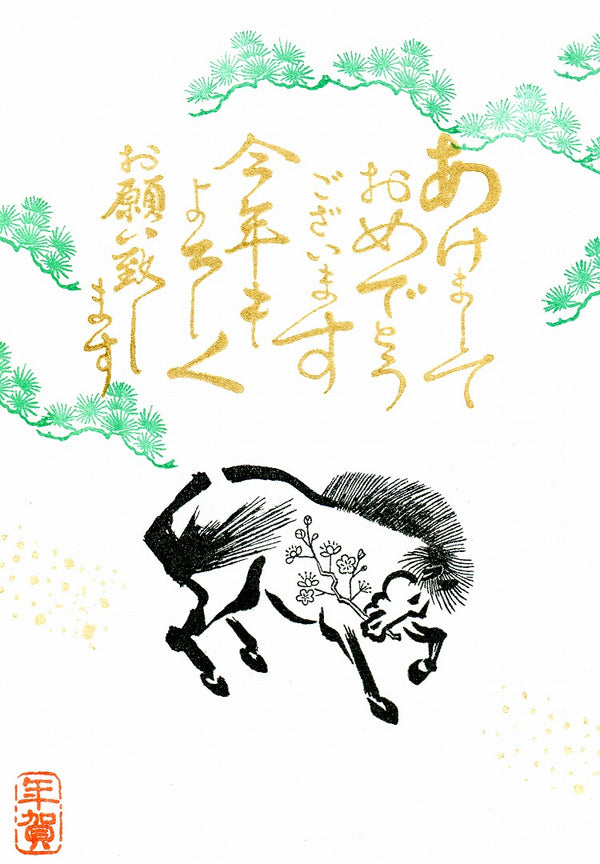 あけまして
おめでとう
ございます
今年も
よろしく
お願い致し
ます
年賀